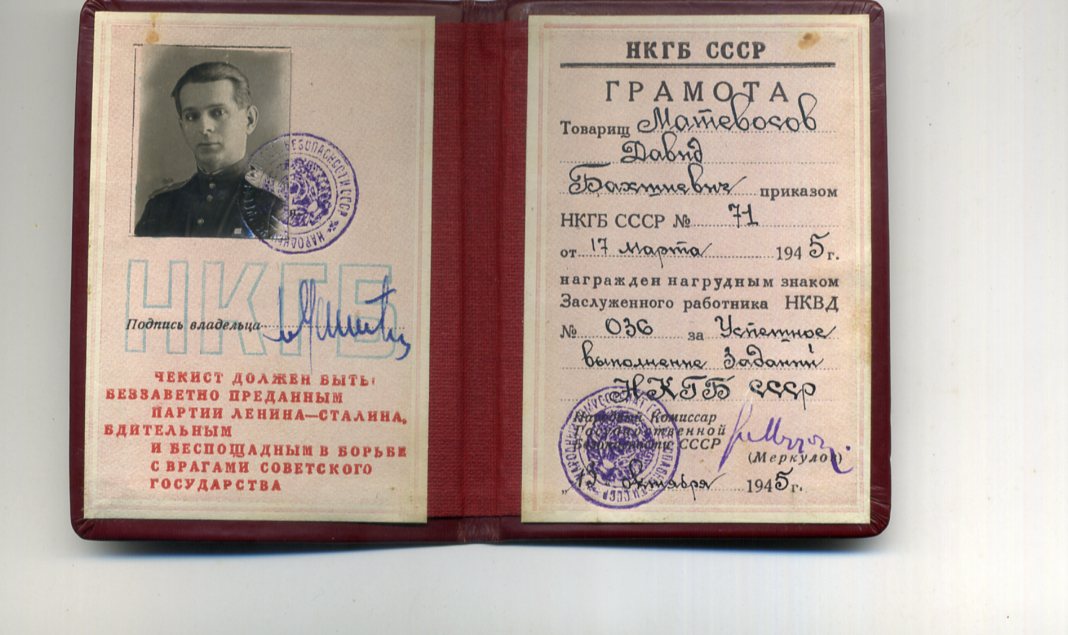 НКГБ
Подпись владельца
ЧЕКИСТ ДОЛЖЕН БЫТЬ:
БЕЗЗАВЕТНО ПРЕДАННЫМ
ПАРТИИ ЛЕНИНА—СТАЛИНА,
БДИТЕЛЬНЫМ
И БЕСПОЩАДНЫМ В БОРЬБЕ
С ВРАГАМИ СОВЕТСКОГО
ГОСУДАРСТВА
НКГБ СССР
ГРАМОТА
Товарищ Матевосов
Давид
приказом
НКГБ СССР № 71
от 17 марта 1945 г.
награжден нагрудным знаком
Заслуженного работника НКВД
№ 036 за Успешное
выполнение Заданий
НКГБ СССР
Народный Комиссар
Государственной
Безопасности СССР
(Меркулов)
октября 1945 г.